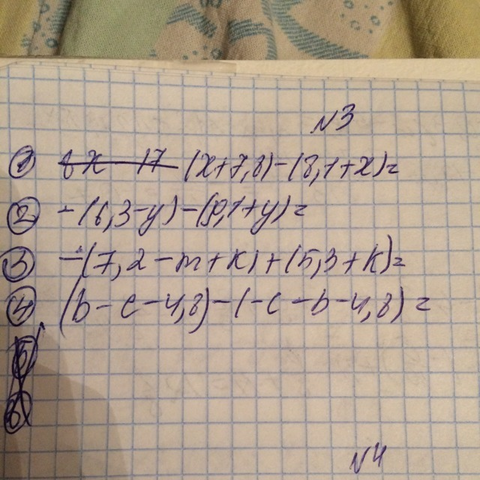 №3
① 8x - 17 (x+7,8)-(8,1+x)=
② -(6,3-y)-(8,1+y)=
③ -(7,2-m+k)+(5,3+k)=
④ (b-c-4,8)-(-c-b-4,8)=
5
6
№4